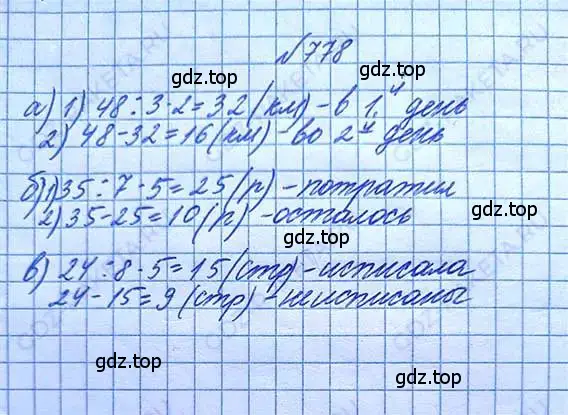 №778
gdz.top gdz.top
а) 1) 48÷3·2=32(км)-в 1й день
2) 48-32=16(км) во 2й день
б) 1) 35÷7·5=25(р)-потратил
2) 35-25=10(р)-осталось
gdz.top
в) 24÷8·5=15(стр)-исписала
24-15=9(стр)-неисписаны
gdz.top gdz.top